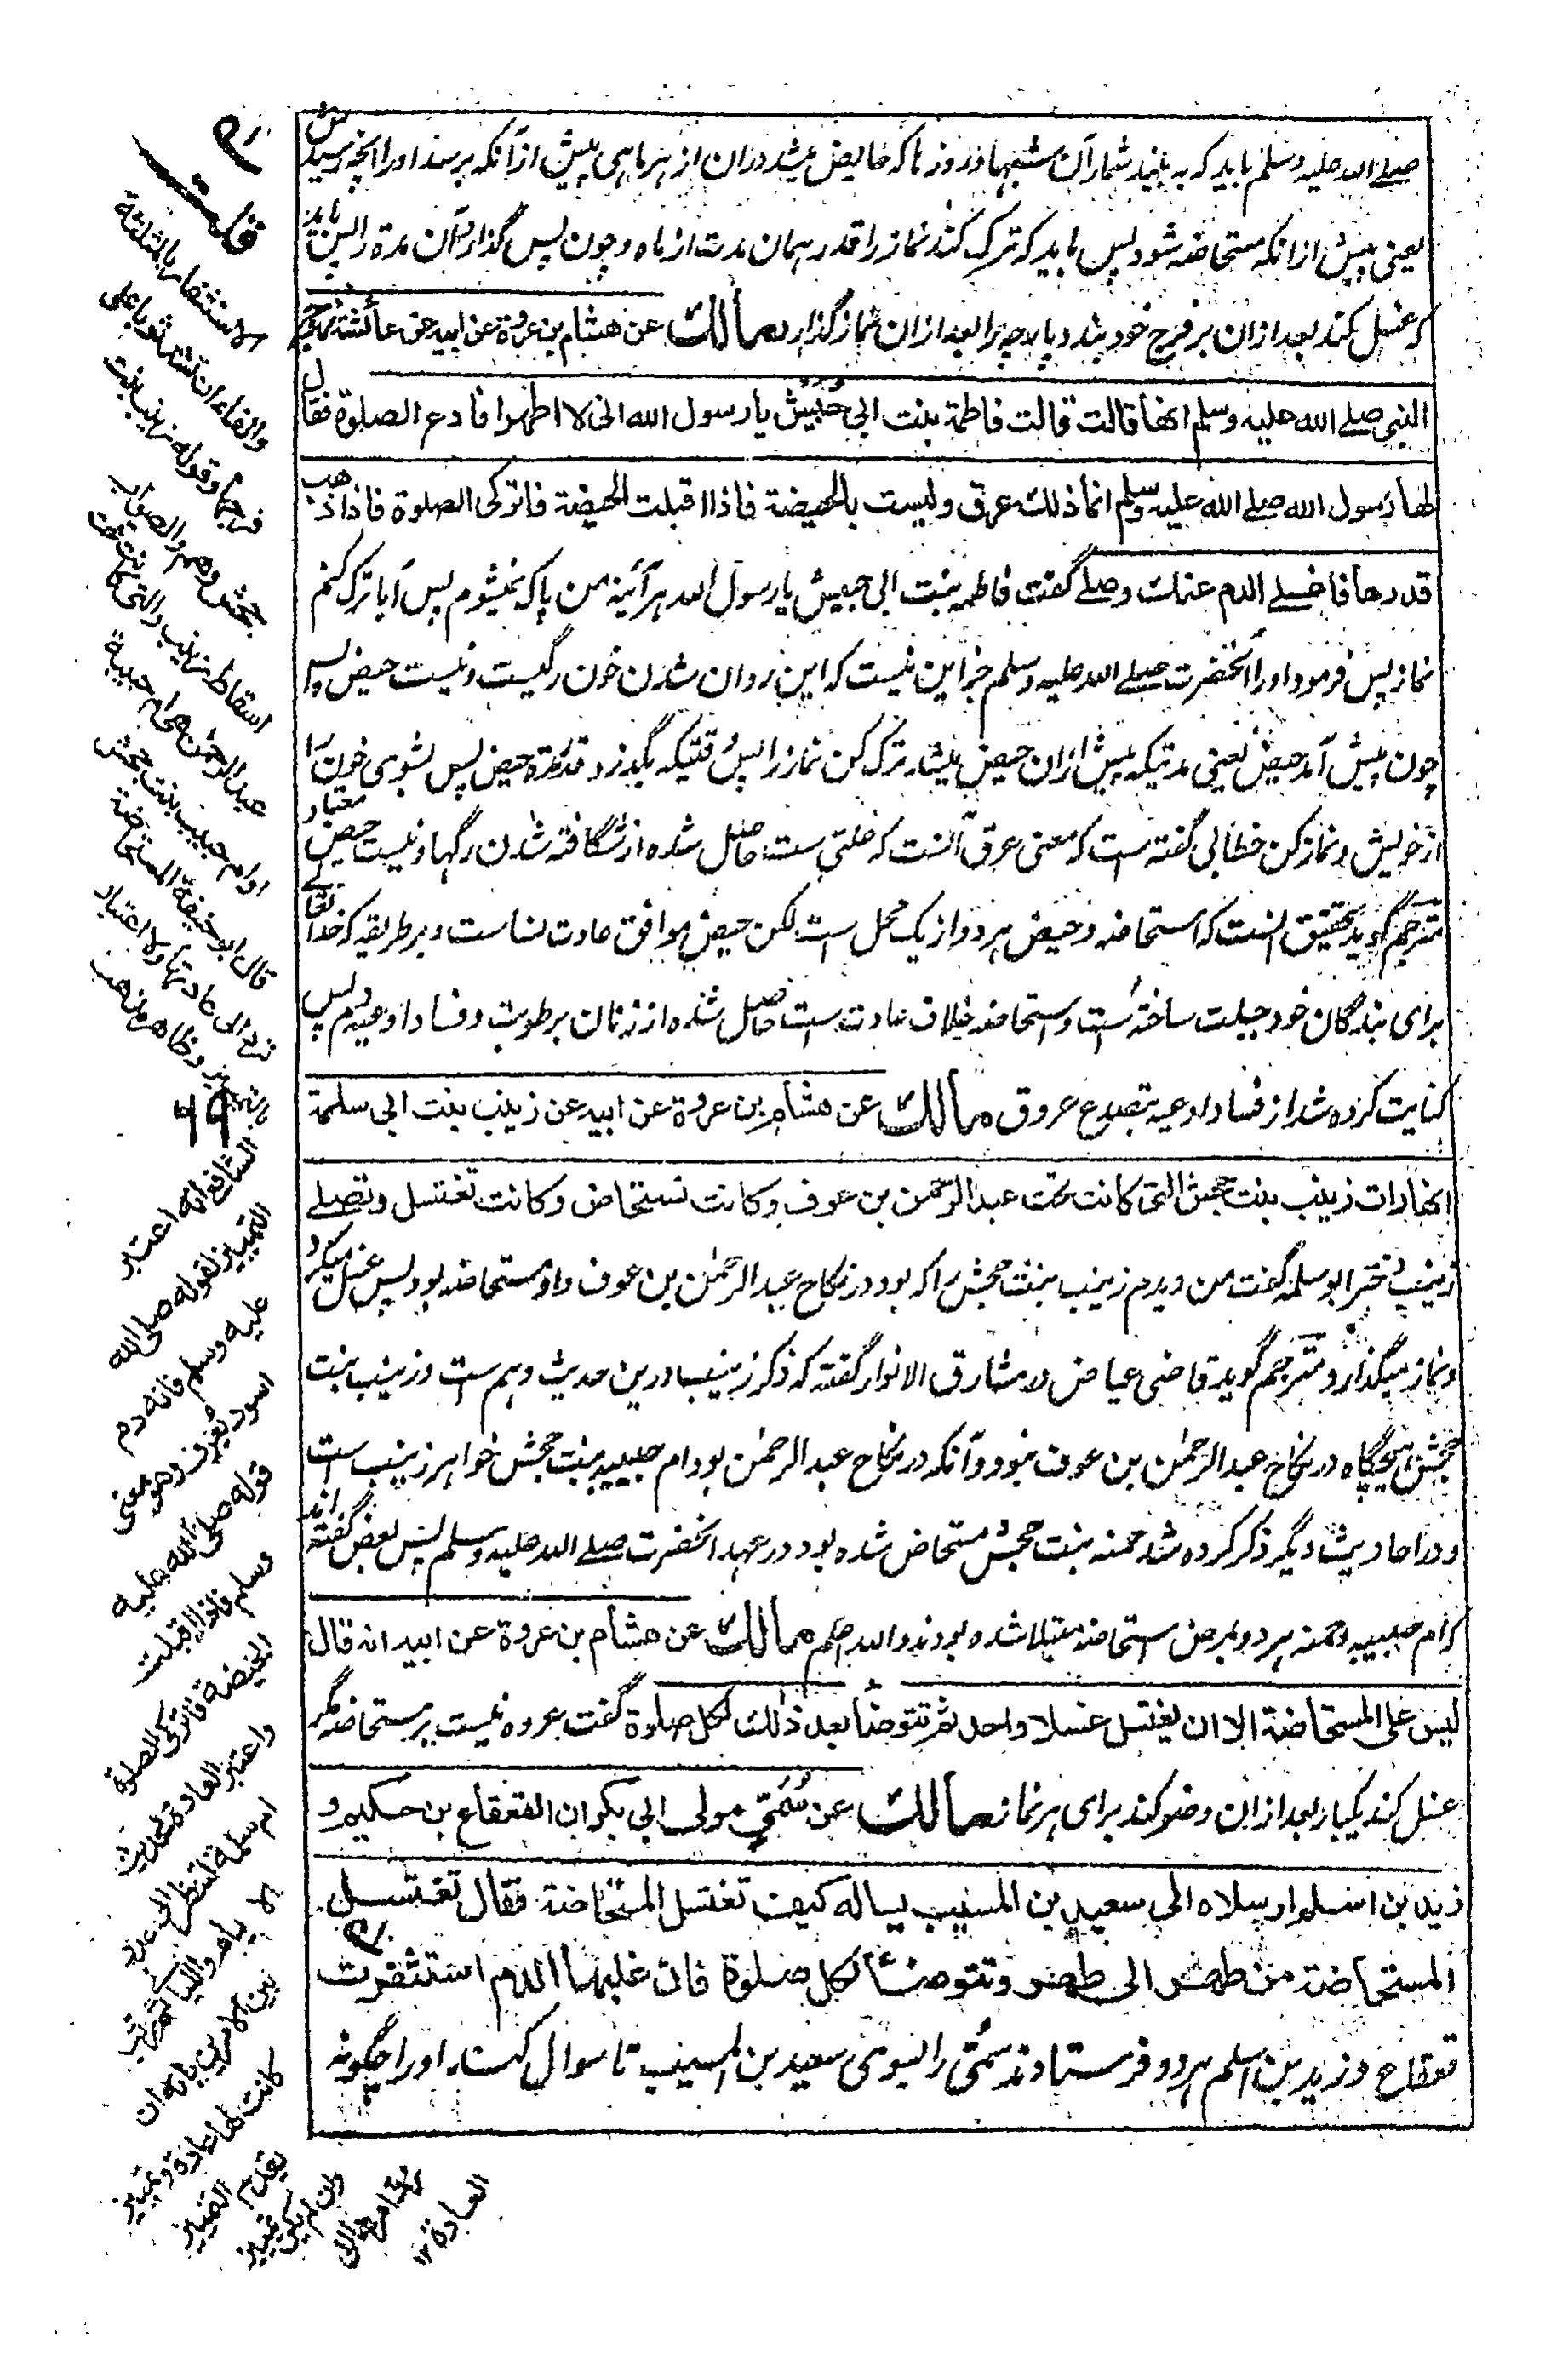 صلے الله علیه وسلم باید که به بیند شمار آن شبها و روزها که حایض میشد در آن از هر ماهی پیش از آنکه برسد او را آنچه رسیدش
یعنی پیش از انکه مستحاضه شود پس باید که ترک کند نماز را قدر همان مدت از ماه و چون پس گذارد آن مدة را پس باید
که غسل کند بعد ازان بر فرج خود بندد پارچه را بعد ازان نماز گذارد مالك عن هشام بن عروة عن ابيه عن عائشة زوج
النبي صلے الله عليه وسلم انها قالت قالت فاطمة بنت ابي حُبَيش يا رسول الله اني لا اطهر افادع الصلوة فقال
لها رسول الله صلے الله عليه وسلم انما ذلك عرق وليست بالحيضة فاذا اقبلت الحيضة فاتركى الصلوة فاذا ذهب
قدرها فاغسلے الدم عنك وصلے گفت فاطمه بنت ابی حبیش یا رسول الله هر آئینه من پاک نمیشوم پس آیا ترک کنم
نماز پس فرمود او را آنحضرت صلے الله علیه وسلم جز این نیست که این روان شدن خون رگیست و نیست حیض پس
چون پیش آمد حیض یعنی مدتیکه پیش ازان حیض میشد ترک کن نماز را پس وقتیکه بگذرد قدر مدة حیض پس بشوی خون را
از خویش و نماز کن خطابی گفته است که معنی عرق آنست که علتی ست حاصل شده از شگافته شدن رگها و نیست حیض معتاد
مترجم گوید تحقیق آنست که استحاضه و حیض هر دو از یک محل است لکن حیض موافق عادت نساست و بر طریقه که خدا تعالے
برای بندگان خود جبلت ساخته است و استحاضه خلاف عادت ست حاصل شده از زنان برطوبت و فساد اوعیه دم پس
کنایت کرده شد از فساد اوعیه بتصدع عروق مالك عن هشام بن عروة عن ابيه عن زينب بنت ابي سلمة
انها رات زينب بنت جحش التى كانت تحت عبد الرحمن بن عوف وكانت تستحاض وكانت تغتسل وتصلے
زینب دختر ابو سلمه گفت من دیدم زینب بنت جحش را که بود در نکاح عبد الرحمٰن بن عوف و او مستحاضه بود پس غسل میکرد
و نماز میگذارد مترجم گوید قاضی عیاض در مشارق الانوار گفته که ذکر زینب درین حدیث وهم ست و زینب بنت
جحش هیچگاه در نکاح عبد الرحمٰن بن عوف نبود و آنکه در نکاح عبد الرحمٰن بود ام حبیبه بنت جحش خواهر زینب ست
و در احادیث دیگر ذکر کرده شد حمنه بنت جحش مستحاض شده بود در عهد آنحضرت صلے الله علیه وسلم پس بعض گفته اند
که ام حبیبه و حمنه هر دو بمرض استحاضه مبتلا شده بودند والله اعلم مالك عن هشام بن عروة عن ابيه انه قال
ليس على المستحاضة الا ان تغتسل غسلا واحدا ثم تتوضأ بعد ذلك لكل صلوة گفت عروه نیست بر مستحاضه مگر
غسل کند یکبار بعد ازان وضو کند برای هر نماز مالك عن سُمَيّ مولى ابي بكر ان القعقاع بن حكيم و
زيد بن اسلم ارسلاه الى سعيد بن المسيب يساله كيف تغتسل المستحاضة فقال تغتسل
المستحاضة من طهر الى طهر وتتوضأ لكل صلوة فان غلبها الدم استثفرت
قعقاع و زید بن اسلم هر دو فرستادند سُمَی را بسوی سعید بن المسیب تا سوال کند او را چگونه
قلت
الاستثفار بالثلثة
والفاء ان تشد ثوبا على
فرجها وقوله زينب بنت
جحش وهم والصواب
اسقاط زينب والتى كانت تحت
عبد الرحمن هى ام حبيبة
او ام حبيب بنت جحش
قال ابو حنيفة المستحاضة
ترد الى عادتها ولا اعتبار
بالتمييز وظاهر مذهب
٦٩
الشافعي انه اعتبر
التمييز لقوله صلى الله
عليه وسلم فانه دم
اسود يُعرف وهو معنى
قوله صلى الله عليه
وسلم فاذا اقبلت
الحيضة فاتركى الصلوة
واعتبر العادة لحديث
ام سلمة لتنظر الى عدد
الايام والليالى
بين الامرين بانه ان
كانت لها عادة وتمييز
يقدم التمييز
وان لم يكن تمييز
العادة ١٢